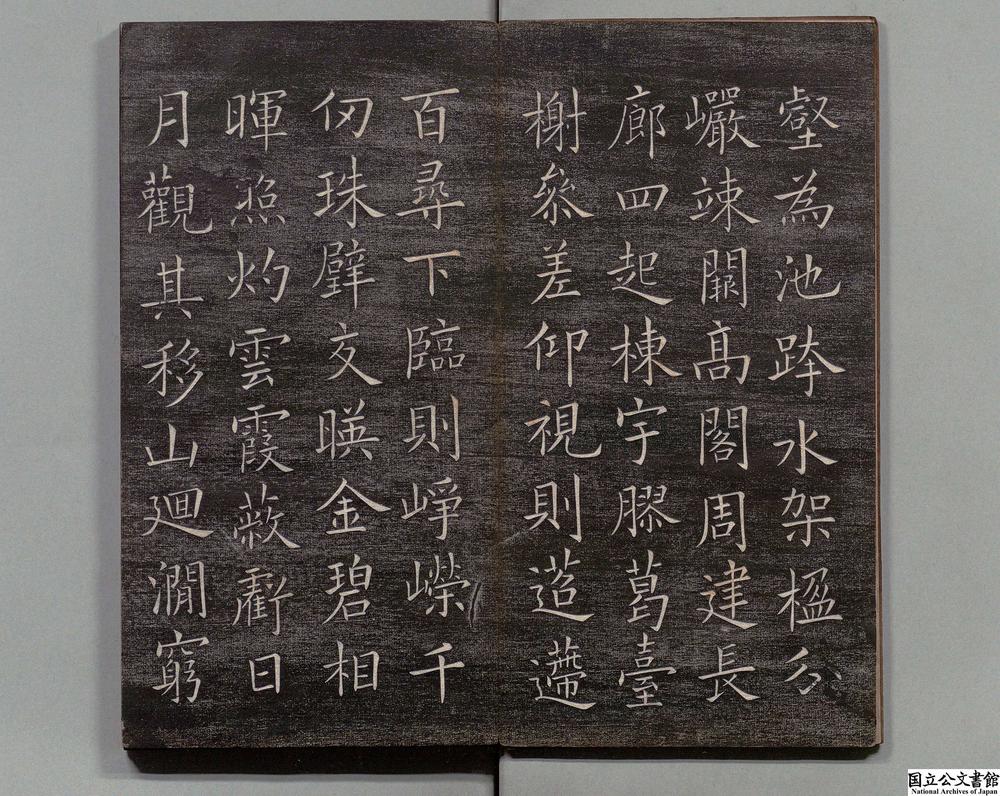 壑為池跨水架楹分
巖竦闕高閣周建長
廊四起棟宇膠葛臺
榭參差仰視則迢遰
百尋下臨則崢嶸千
仞珠璧交暎金碧相
暉照灼雲霞蔽虧日
月觀其移山迴澗窮
国立公文書館
National Archives of Japan